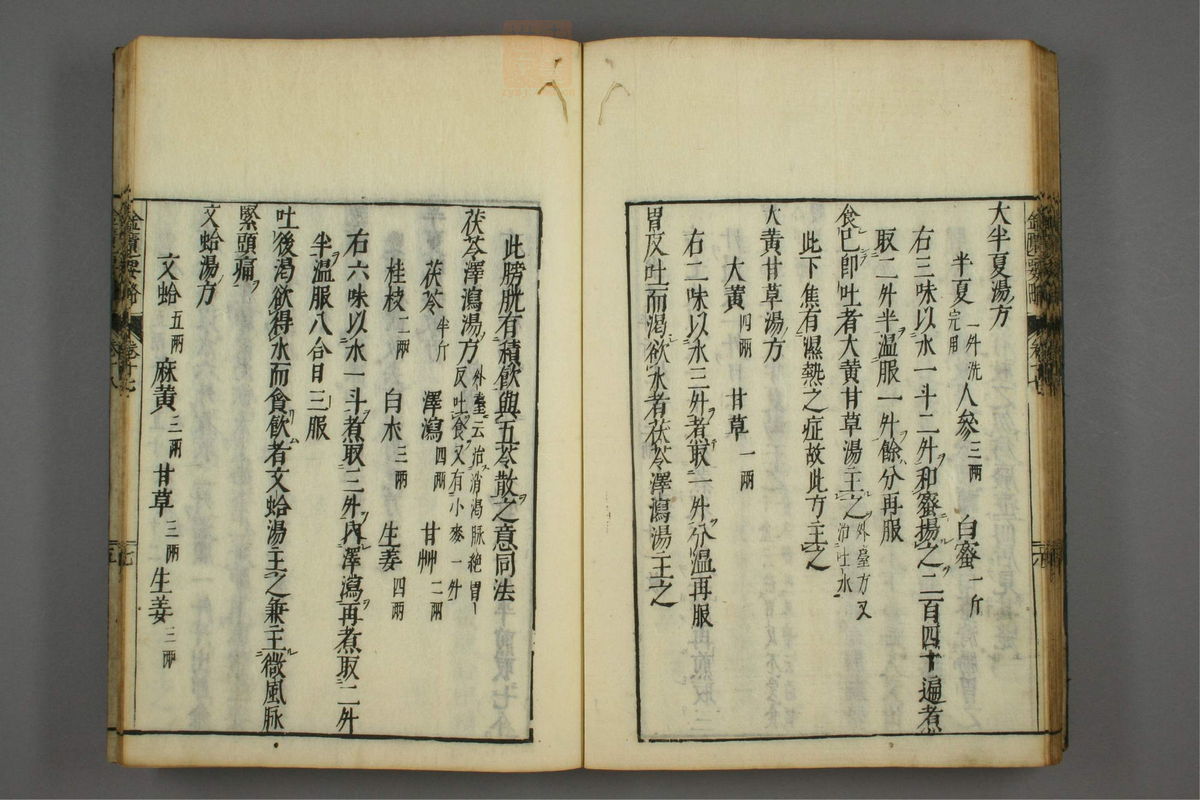 大半夏湯方
半夏 一升洗完用 人參 三兩 白蜜 一斤
右三味以水一斗二升和蜜揚之二百四十遍煮
取二升半温服一升餘分再服
食已即吐者大黄甘草湯主之 外臺方又治吐水
此下焦有濕熱之症故此方主之
大黄甘草湯方
大黄 四兩 甘草 一兩
右二味以水三升煮取一升分温再服
胃反吐而渇欲水者茯苓澤瀉湯主之
此膀胱有積飲與五苓散之意同法
茯苓澤瀉湯方 外臺云治消渇脉絶胃反吐食又有小麥一升
茯苓 半斤 澤瀉 四兩 甘艸 二兩
桂枝 二兩 白朮 三兩 生姜 四兩
右六味以水一斗煮取三升内澤瀉再煮取二升
半温服八合日三服
吐後渇欲得水而貪飲者文蛤湯主之兼主微風脉
緊頭痛
文蛤湯方
文蛤 五兩 麻黄 三兩 甘草 三兩 生姜 三兩
金匱要略